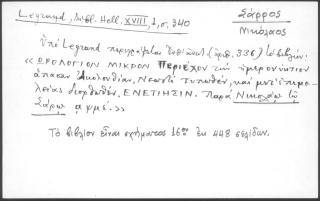 Legrand, Bibl. Hell. XVIII, 1, σ. 340
Σάρρος
Νικόλαος
Ὑπό Legrand περιγράφεται ἐνθ' ἀνωτ. (ἀριθ. 336) τό βιβλίον:
«ΩΡΟΛΟΓΙΟΝ ΜΙΚΡΟΝ Περιέχον τήν ἡμερονύκτιον
ἅπασαν Ἀκολουθίαν, Νεωστί τυπωθέν, καί μετ' ἐπιμε-
λείας διορθωθέν. ΕΝΕΤΙΗΣΙΝ. Παρά Νικολάῳ τῷ
Σάρῳ αψμέ.»
Τό βιβλίον εἶναι σχήματος 16ου ἐκ 448 σελίδων.